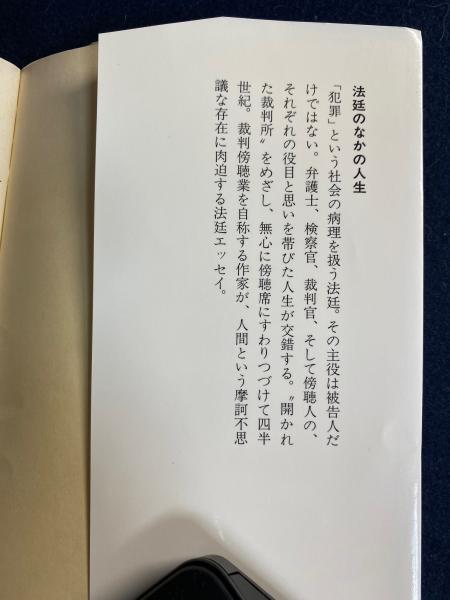 法廷のなかの人生
「犯罪」という社会の病理を扱う法廷。その主役は被告人だ
けではない。弁護士、検察官、裁判官、そして傍聴人の、
それぞれの役目と思いを帯びた人生が交錯する。〝開かれ
た裁判所〟をめざし、無心に傍聴席にすわりつづけて四半
世紀。裁判傍聴業を自称する作家が、人間という摩訶不思
議な存在に肉迫する法廷エッセイ。